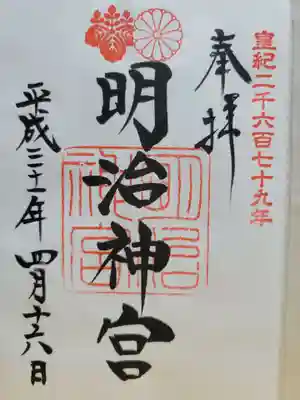 皇紀二千六百七十九年
奉拝
明治神宮
明治神宮
平成三十一年 四月十六日